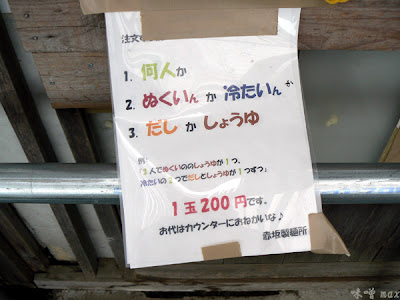 注文
1. 何人か
2. ぬくいんか冷たいんか
3. だしかしょうゆ
人でぬくいののしょうゆが1つ、
冷たいの つでだしとしょうゆが1つずつ」
1玉200円です。
お代はカウンターにおねがいな♪
赤坂製麺所
味噌max